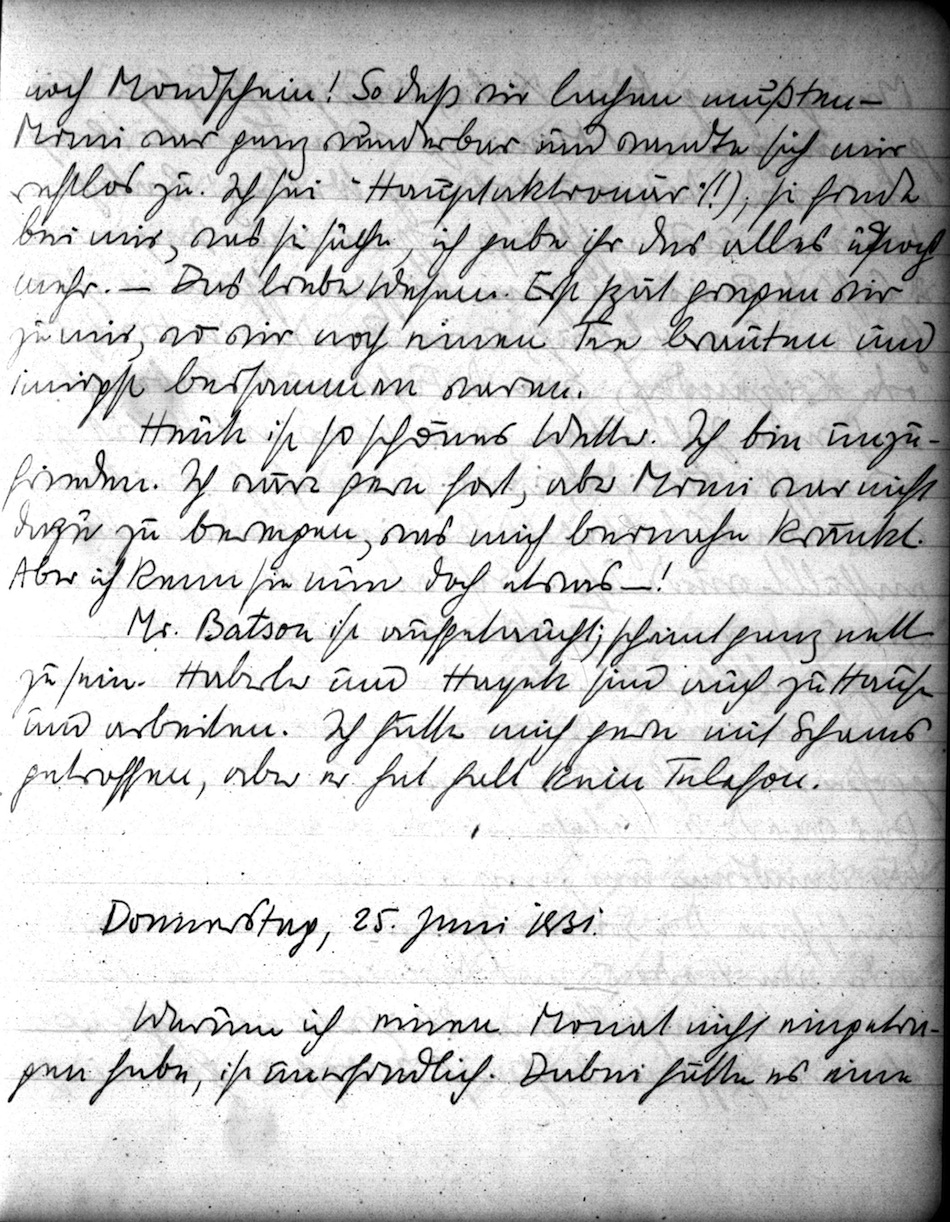 noch Mondschein! So daß wir lachen mußten –
Mimi war ganz wunderbar und wandte sich mir
restlos zu. Ich sei "Hauptaktionär"(!), sie finde
bei mir, was sie suche, ich gebe ihr das alles u. noch
mehr. – Das liebe Wesen. Erst spät gingen wir
zu mir, wo wir noch einen Tee brauten und
innigst beisammen waren.
Heute ist so schönes Wetter. Ich bin unzu-
frieden. Ich wäre gern fort, aber Mimi war nicht
dazu zu bewegen, was mich beinahe kränkt.
Aber ich kenn sie nun doch etwas –!
Mr. Batson ist aufgetaucht; scheint ganz nett
zu sein. Haberler und Hayek sind auch zu Hause
und arbeiten. Ich hätte mich gern mit Schams
getroffen, aber er hat halt kein Telefon.
Donnerstag, 25. Juni 1931.
Warum ich einen Monat nicht eingetra-
gen habe, ist unerfindlich. Dabei hätte es eine